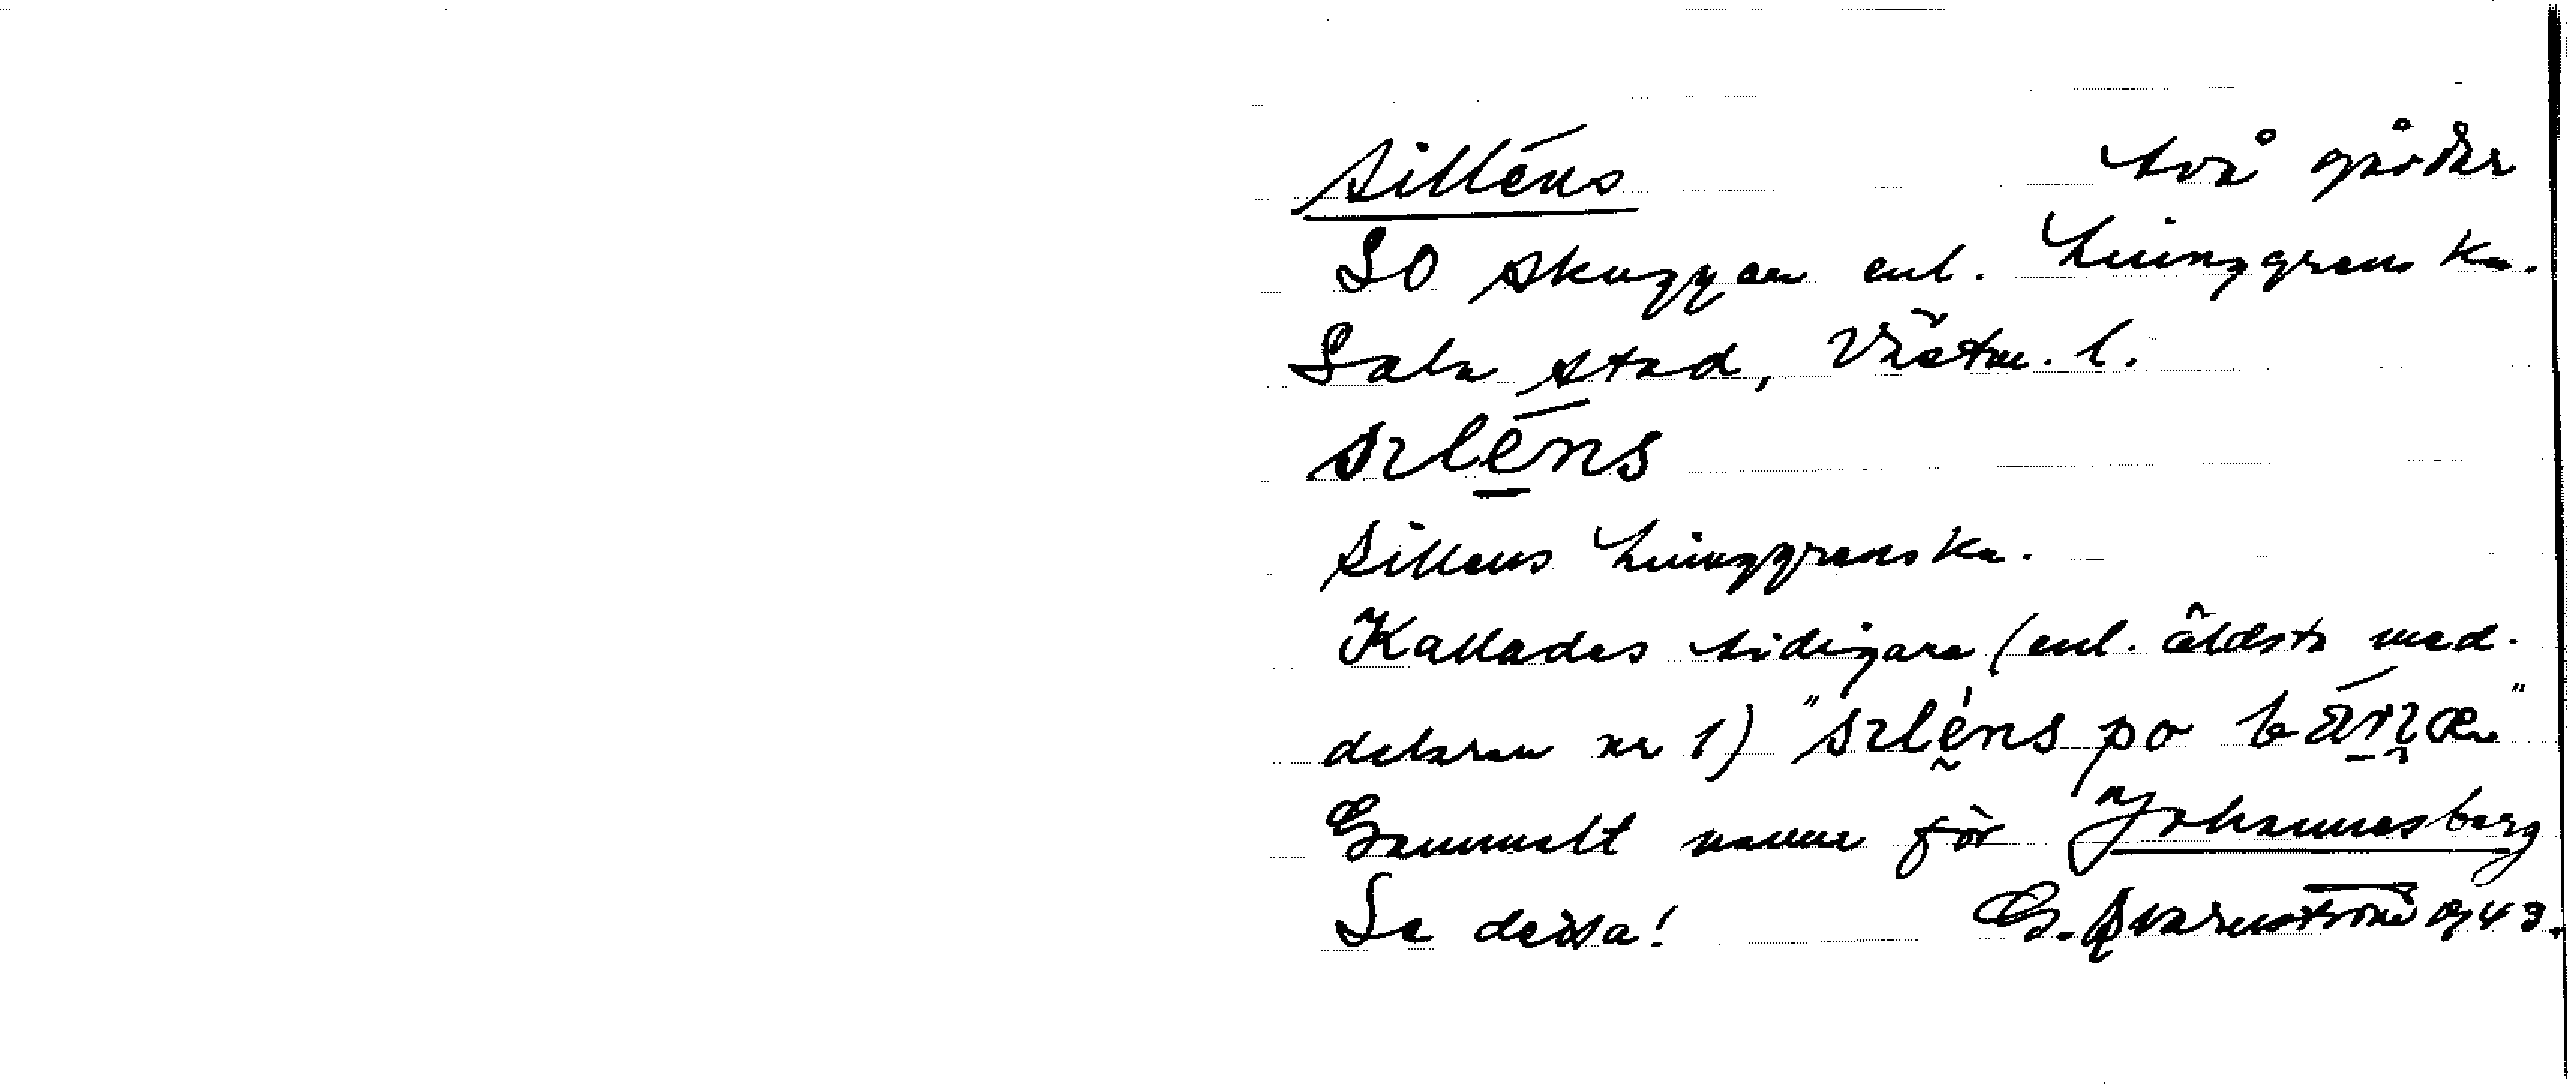 Silléns två gårdar
SO Skuggan enl. Ljunggrens ka.
Sala stad, Västm. l.
sιléns
Sillens Ljunggrens ka.
Kallades tidigare (enl. äldste med-
delaren nr 1) "sιléns po
Gammalt namn för Johannesberg
Se dessa! G.